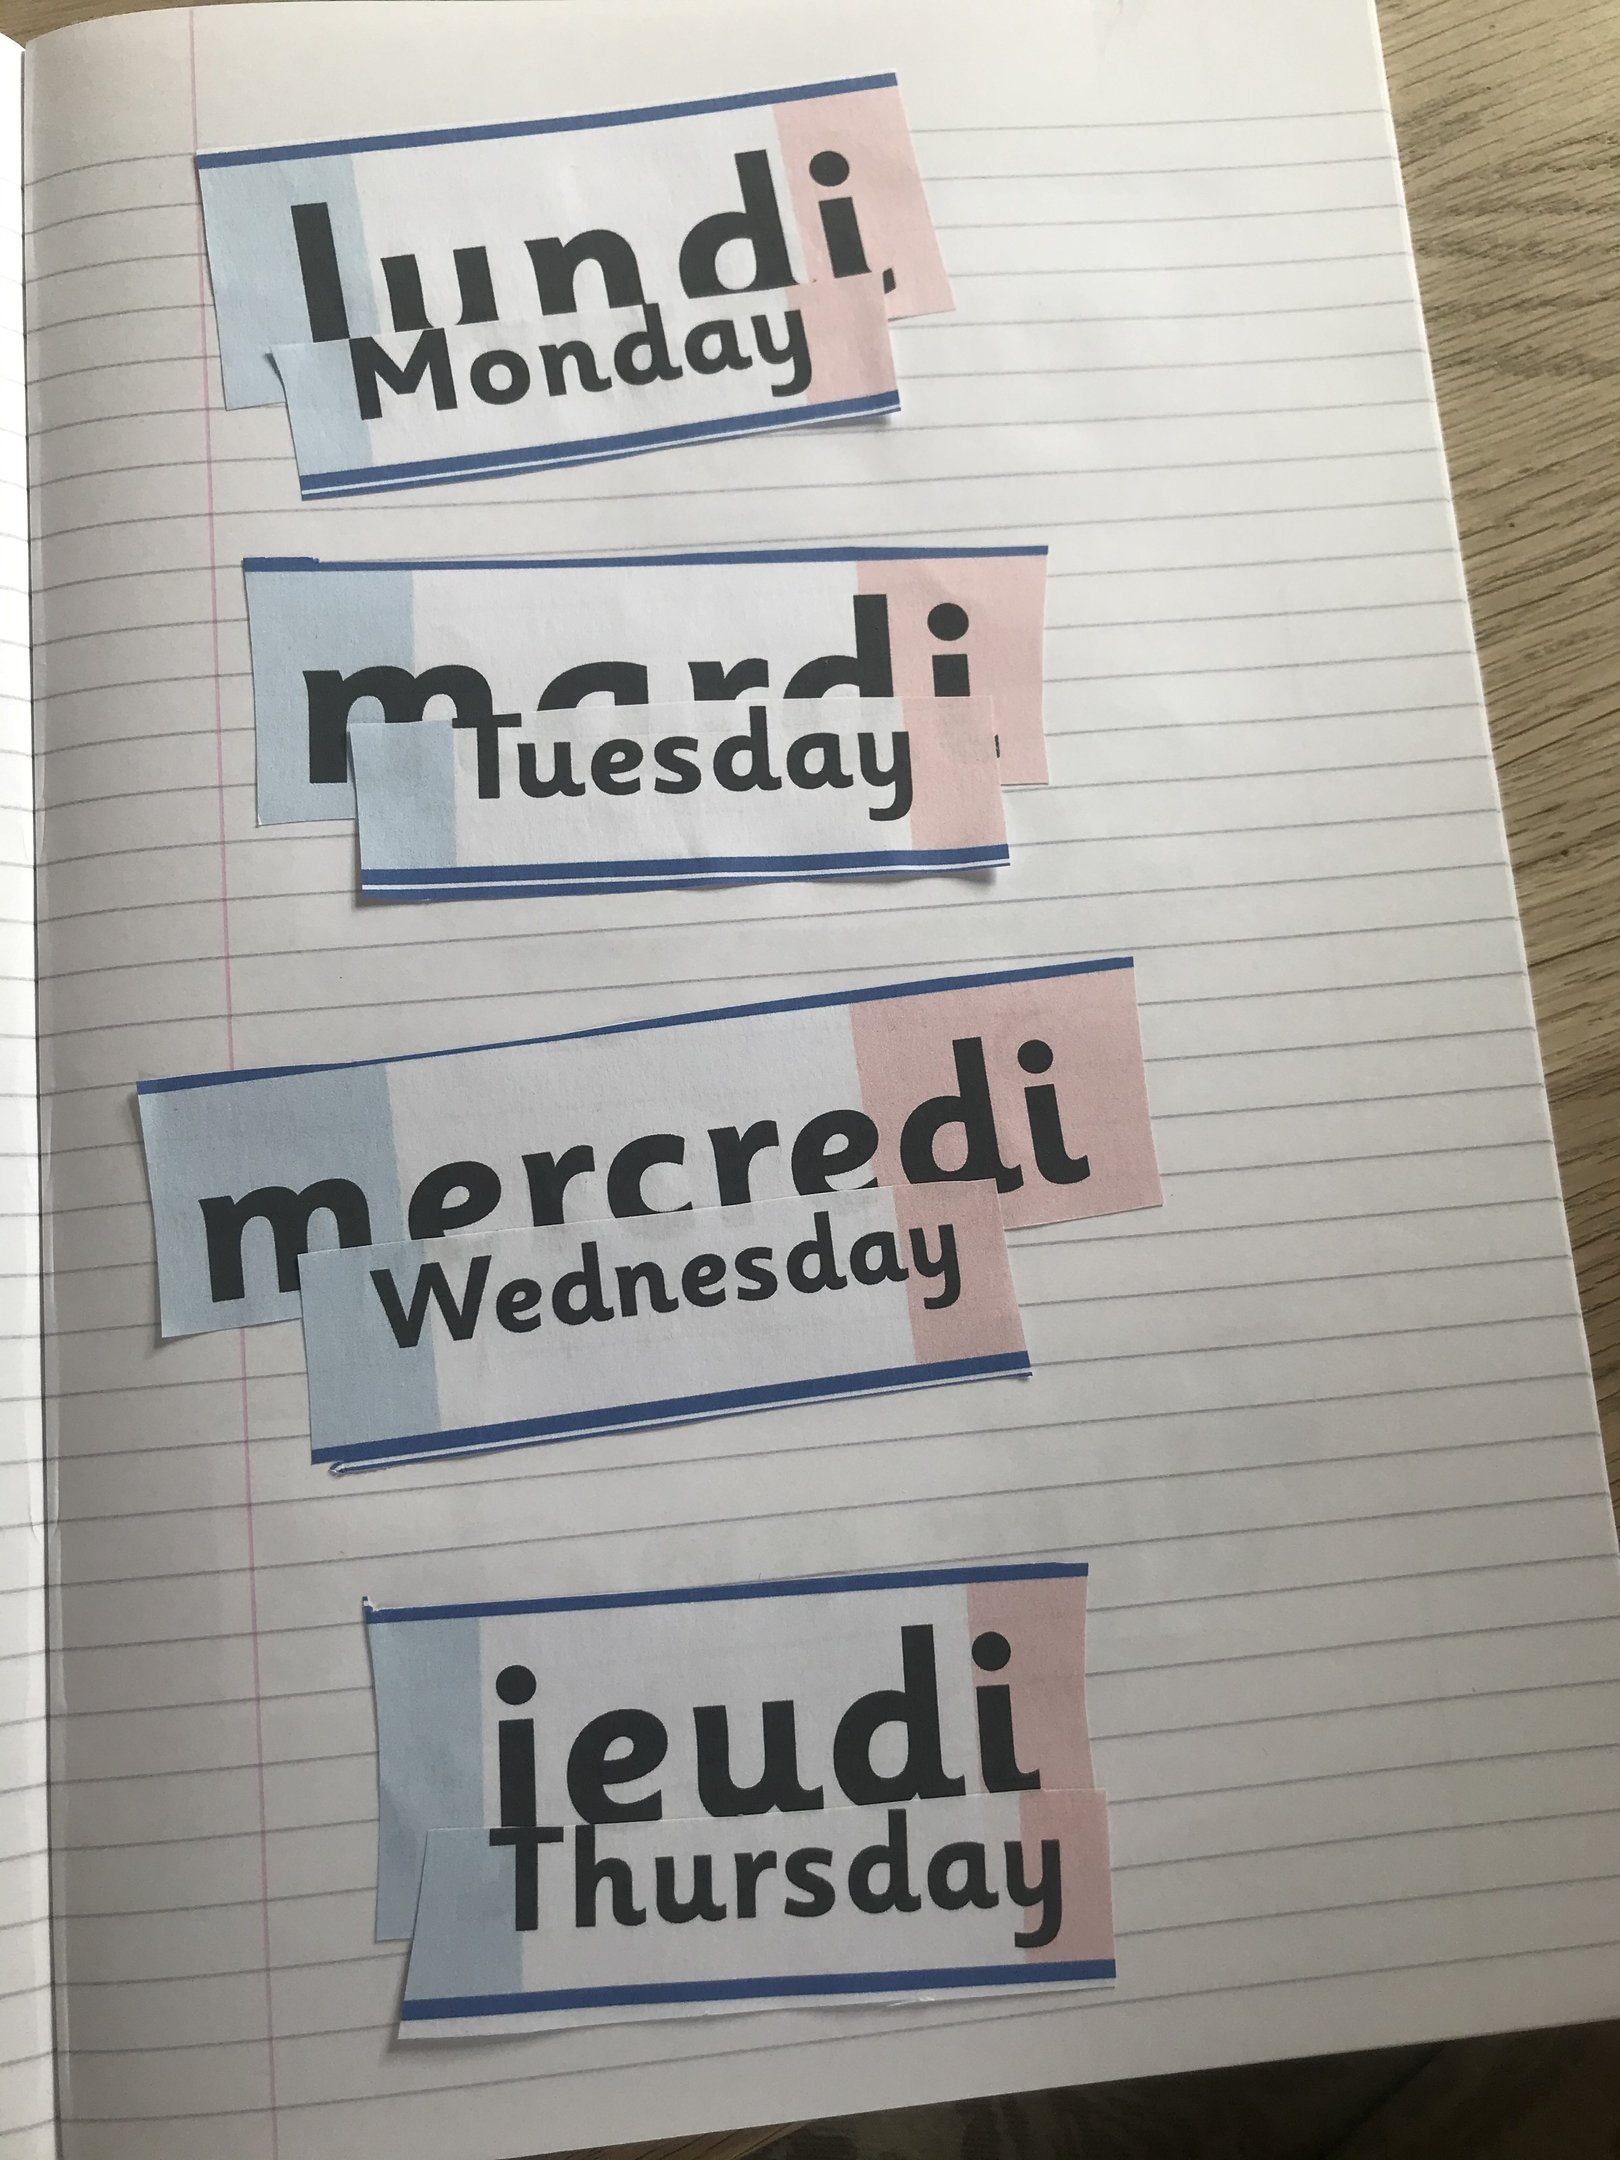 lundi
Monday
mardi
Tuesday
mercredi
Wednesday
jeudi
Thursday